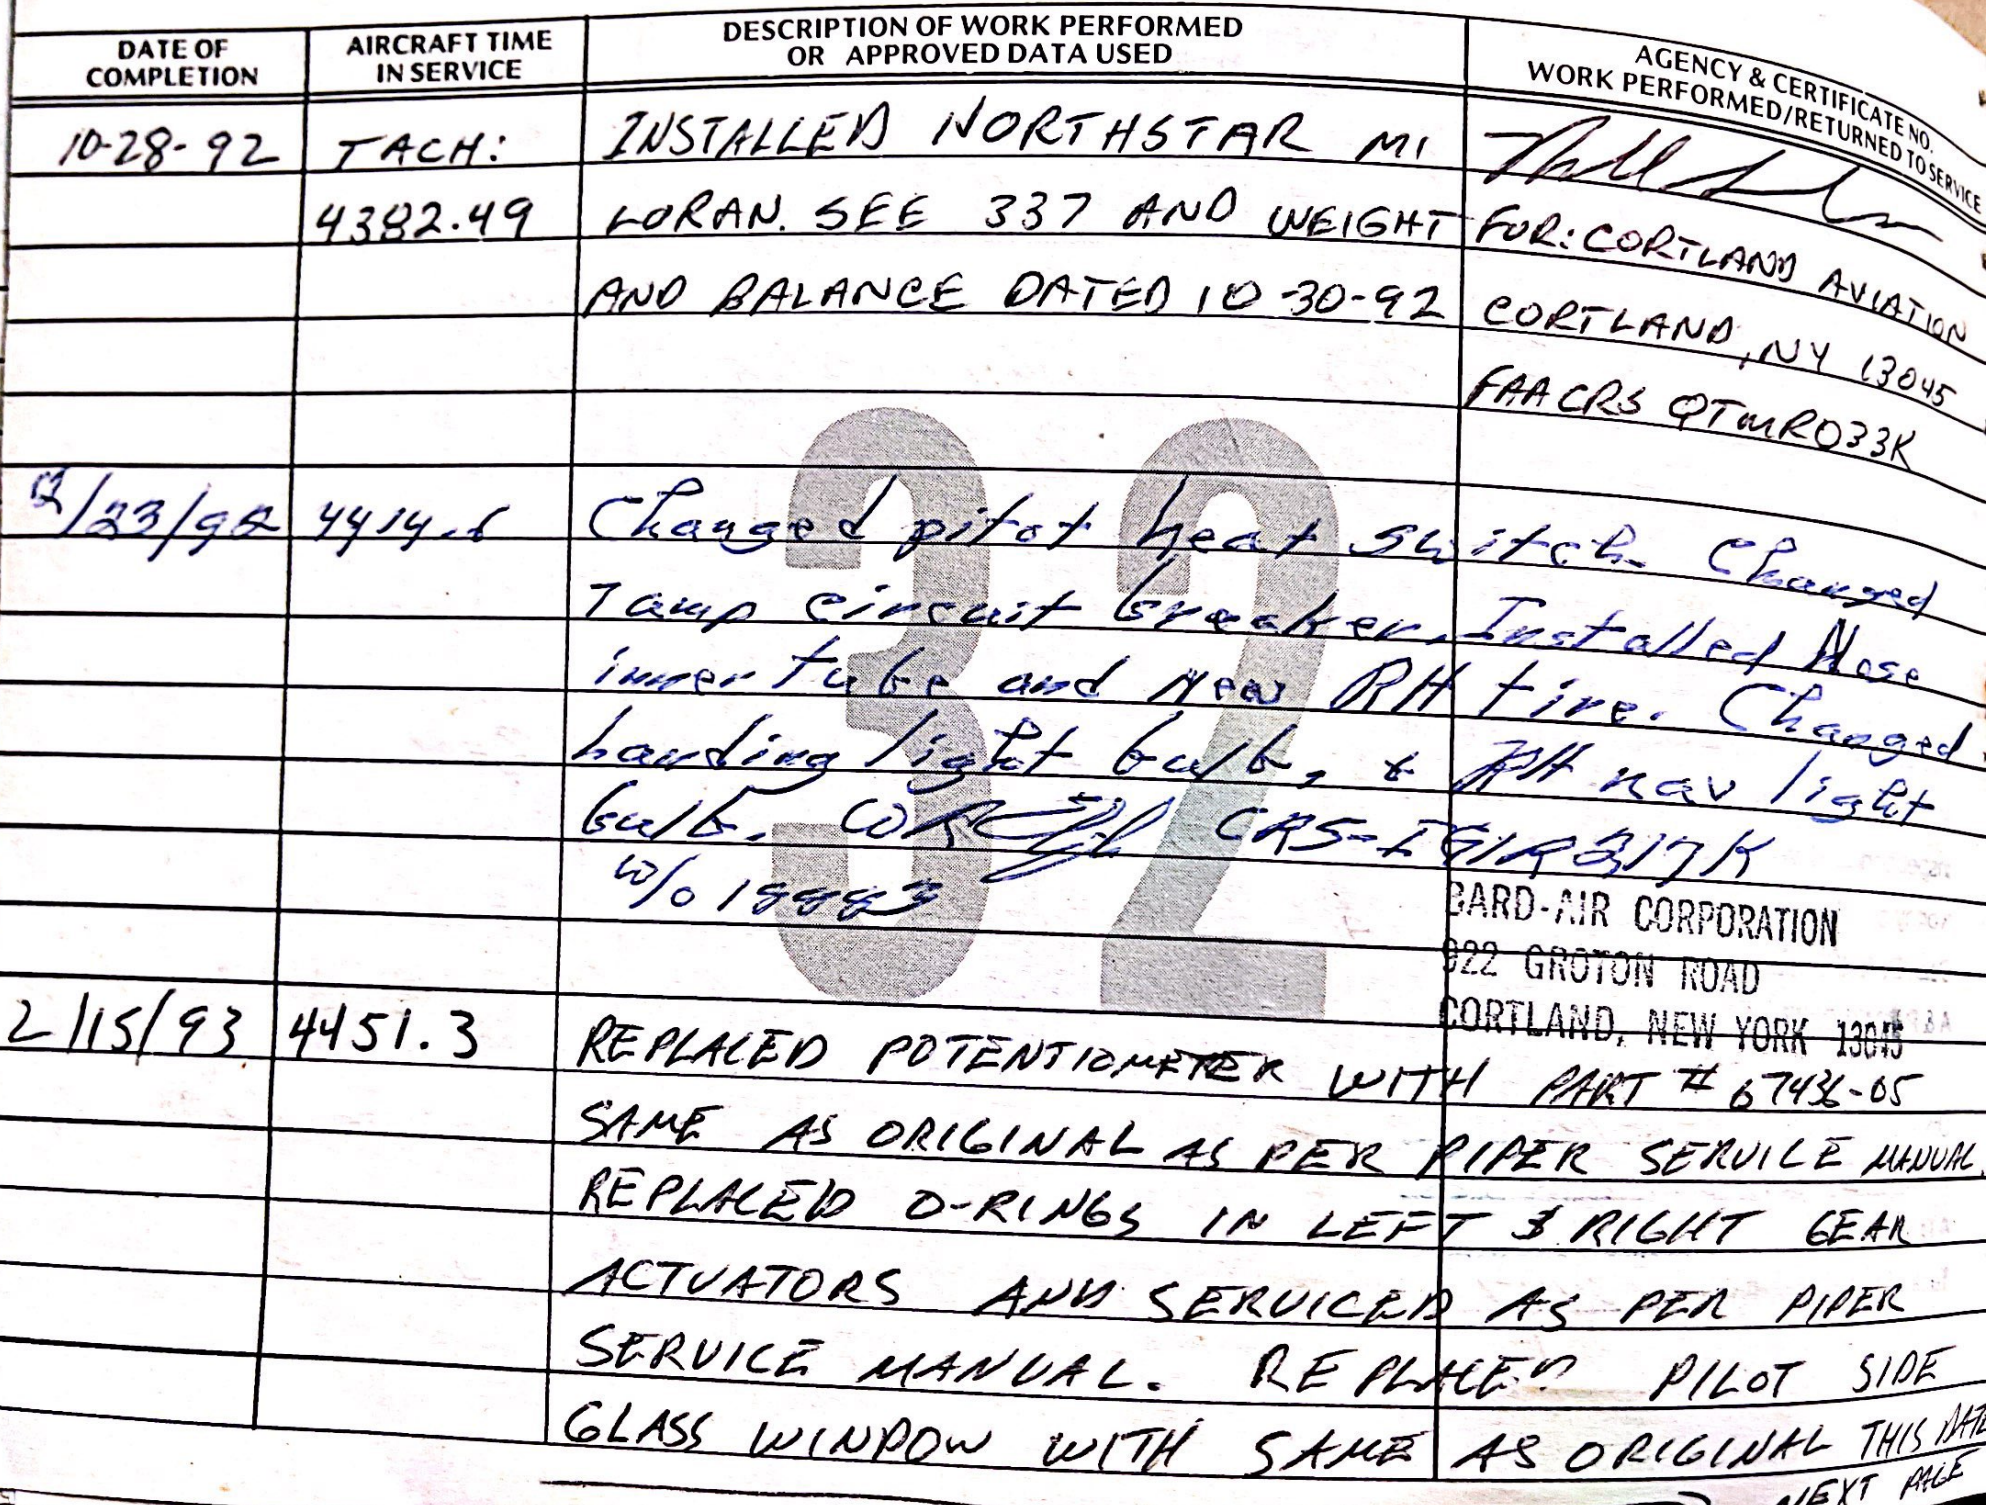 DATE OF COMPLETION
AIRCRAFT TIME IN SERVICE
DESCRIPTION OF WORK PERFORMED
OR APPROVED DATA USED
AGENCY & CERTIFICATE NO.
WORK PERFORMED/RETURNED TO SERVICE
10-28-92 TACH: INSTALLED NORTHSTAR M1
4382.49 LORAN. SEE 337 AND WEIGHT FOR: CORTLAND AVIATION
AND BALANCE DATED 10-30-92 CORTLAND, NY 13045
FAA CRS QTMR033K
32
12/23/92 4414.6 Changed pitot heat switch. Changed
Tamp circuit breaker. Installed Nose
inner tube and new RH tire. Changed
landing light bulb, & RH nav light
bulb. CRS-
W/o
BARD-AIR CORPORATION
922 GROTON ROAD
CORTLAND, NEW YORK 13045
2/15/93 4451.3 REPLACED POTENTIOMETER WITH PART # 67436-05
SAME AS ORIGINAL AS PER PIPER SERVICE MANUAL.
REPLACED O-RINGS IN LEFT & RIGHT GEAR
ACTUATORS AND SERVICED AS PER PIPER
SERVICE MANUAL. REPLACED PILOT SIDE
GLASS WINDOW WITH SAME AS ORIGINAL THIS DATE
NEXT PAGE